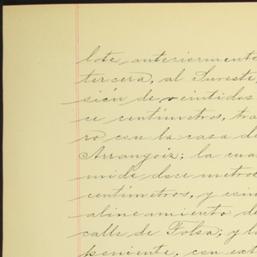 lote anteriormente
tercera, al Sureste,
sión de veintidos
ce centímetros, tra
ro con la casa de
Arrangoiz; la cua
mide doce metros
centímetros, y
alineamiento de
calle de Tolsa; y l
poniente, con ext